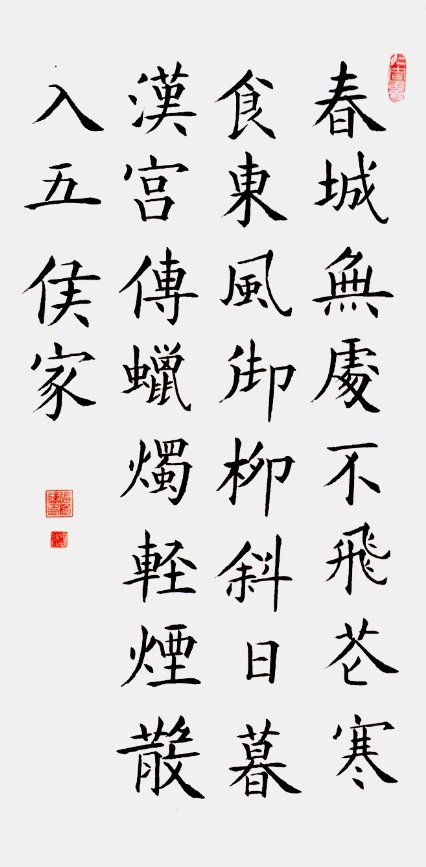 春城無處不飛花寒
食東風御柳斜日暮
漢宮傳蠟燭軽煙散
入五侯家